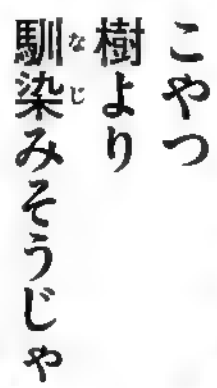 こやつ
樹より
馴染みそうじゃ
なじ